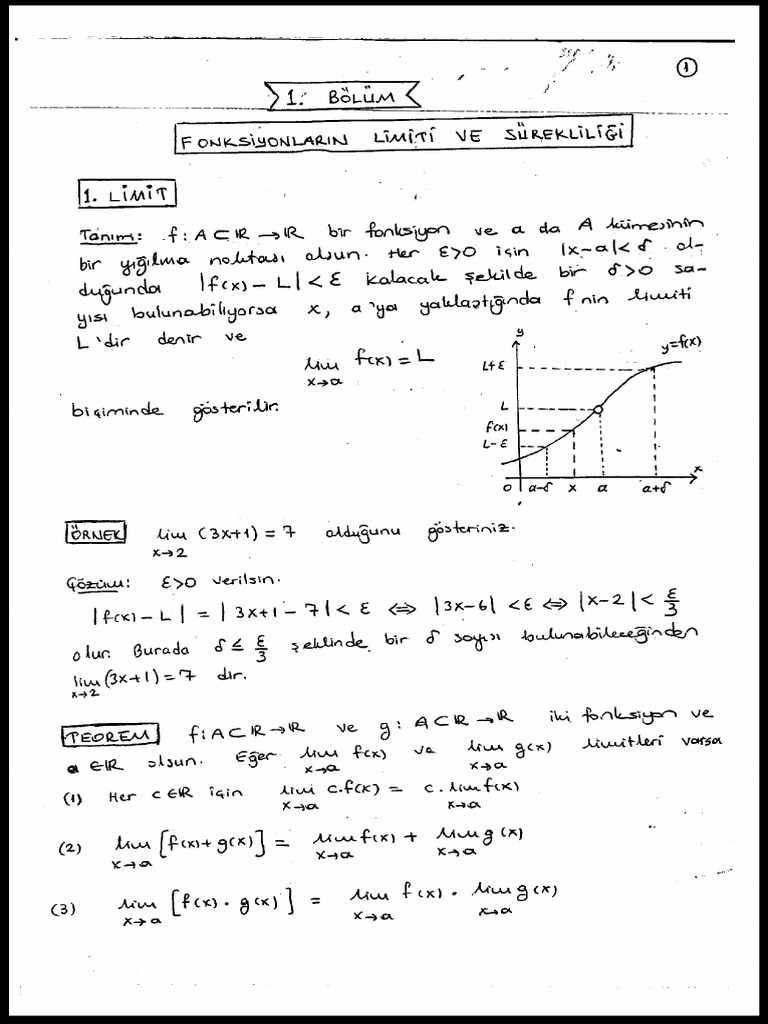 1
1. BÖLÜM
FONKSİYONLARIN LİMİTİ VE SÜREKLİLİĞİ
1. LİMİT
Tanım: f: A⊂ℝ→ℝ bir fonksiyon ve a da A kümesinin
bir yığılma noktası olsun. Her ε>0 için |x-a|<δ ol-
duğunda |f(x)-L|<ε kalacak şekilde bir δ>0 sa-
yısı bulunabiliyorsa x, a'ya yaklaştığında f nin limiti
L'dir denir ve
lim f(x) = L
x→a
biçiminde gösterilir.
y
y=f(x)
L+ε
L
f(x)
L-ε
0 a-δ x a a+δ x
ÖRNEK lim (3x+1) = 7 olduğunu gösteriniz.
x→2
Çözüm: ε>0 verilsin.
|f(x)-L| = |3x+1-7| < ε ⇔ |3x-6| < ε ⇔ |x-2| < ε/3
olur. Burada δ ≤ ε/3 şeklinde bir δ sayısı bulunabileceğinden
lim (3x+1) = 7 dir.
x→2
TEOREM f: A⊂ℝ→ℝ ve g: A⊂ℝ→ℝ iki fonksiyon ve
a ∈ℝ olsun. Eğer lim f(x) ve lim g(x) limitleri varsa
x→a x→a
(1) Her c∈ℝ için lim c.f(x) = c. lim f(x)
x→a x→a
(2) lim [f(x)+g(x)] = lim f(x) + lim g(x)
x→a x→a x→a
(3) lim [f(x) . g(x)] = lim f(x) . lim g(x)
x→a x→a x→a